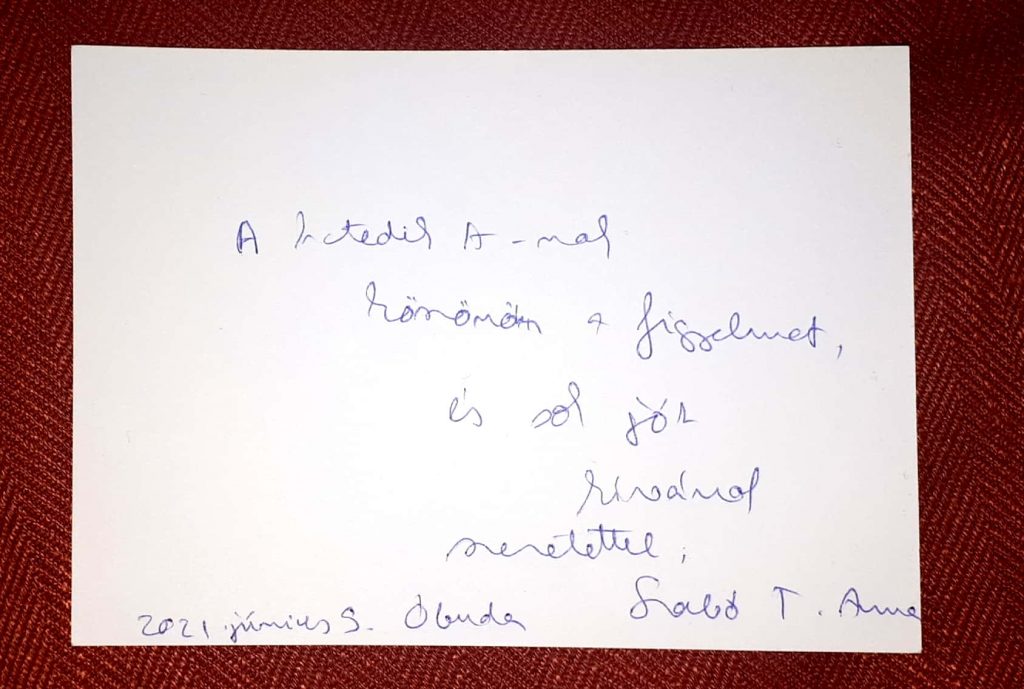 A hetedik A-nak
köszönöm a figyelmet,
és sok jót
kívánok
szeretettel,
Szabó T. Anna
2021 június Óbuda